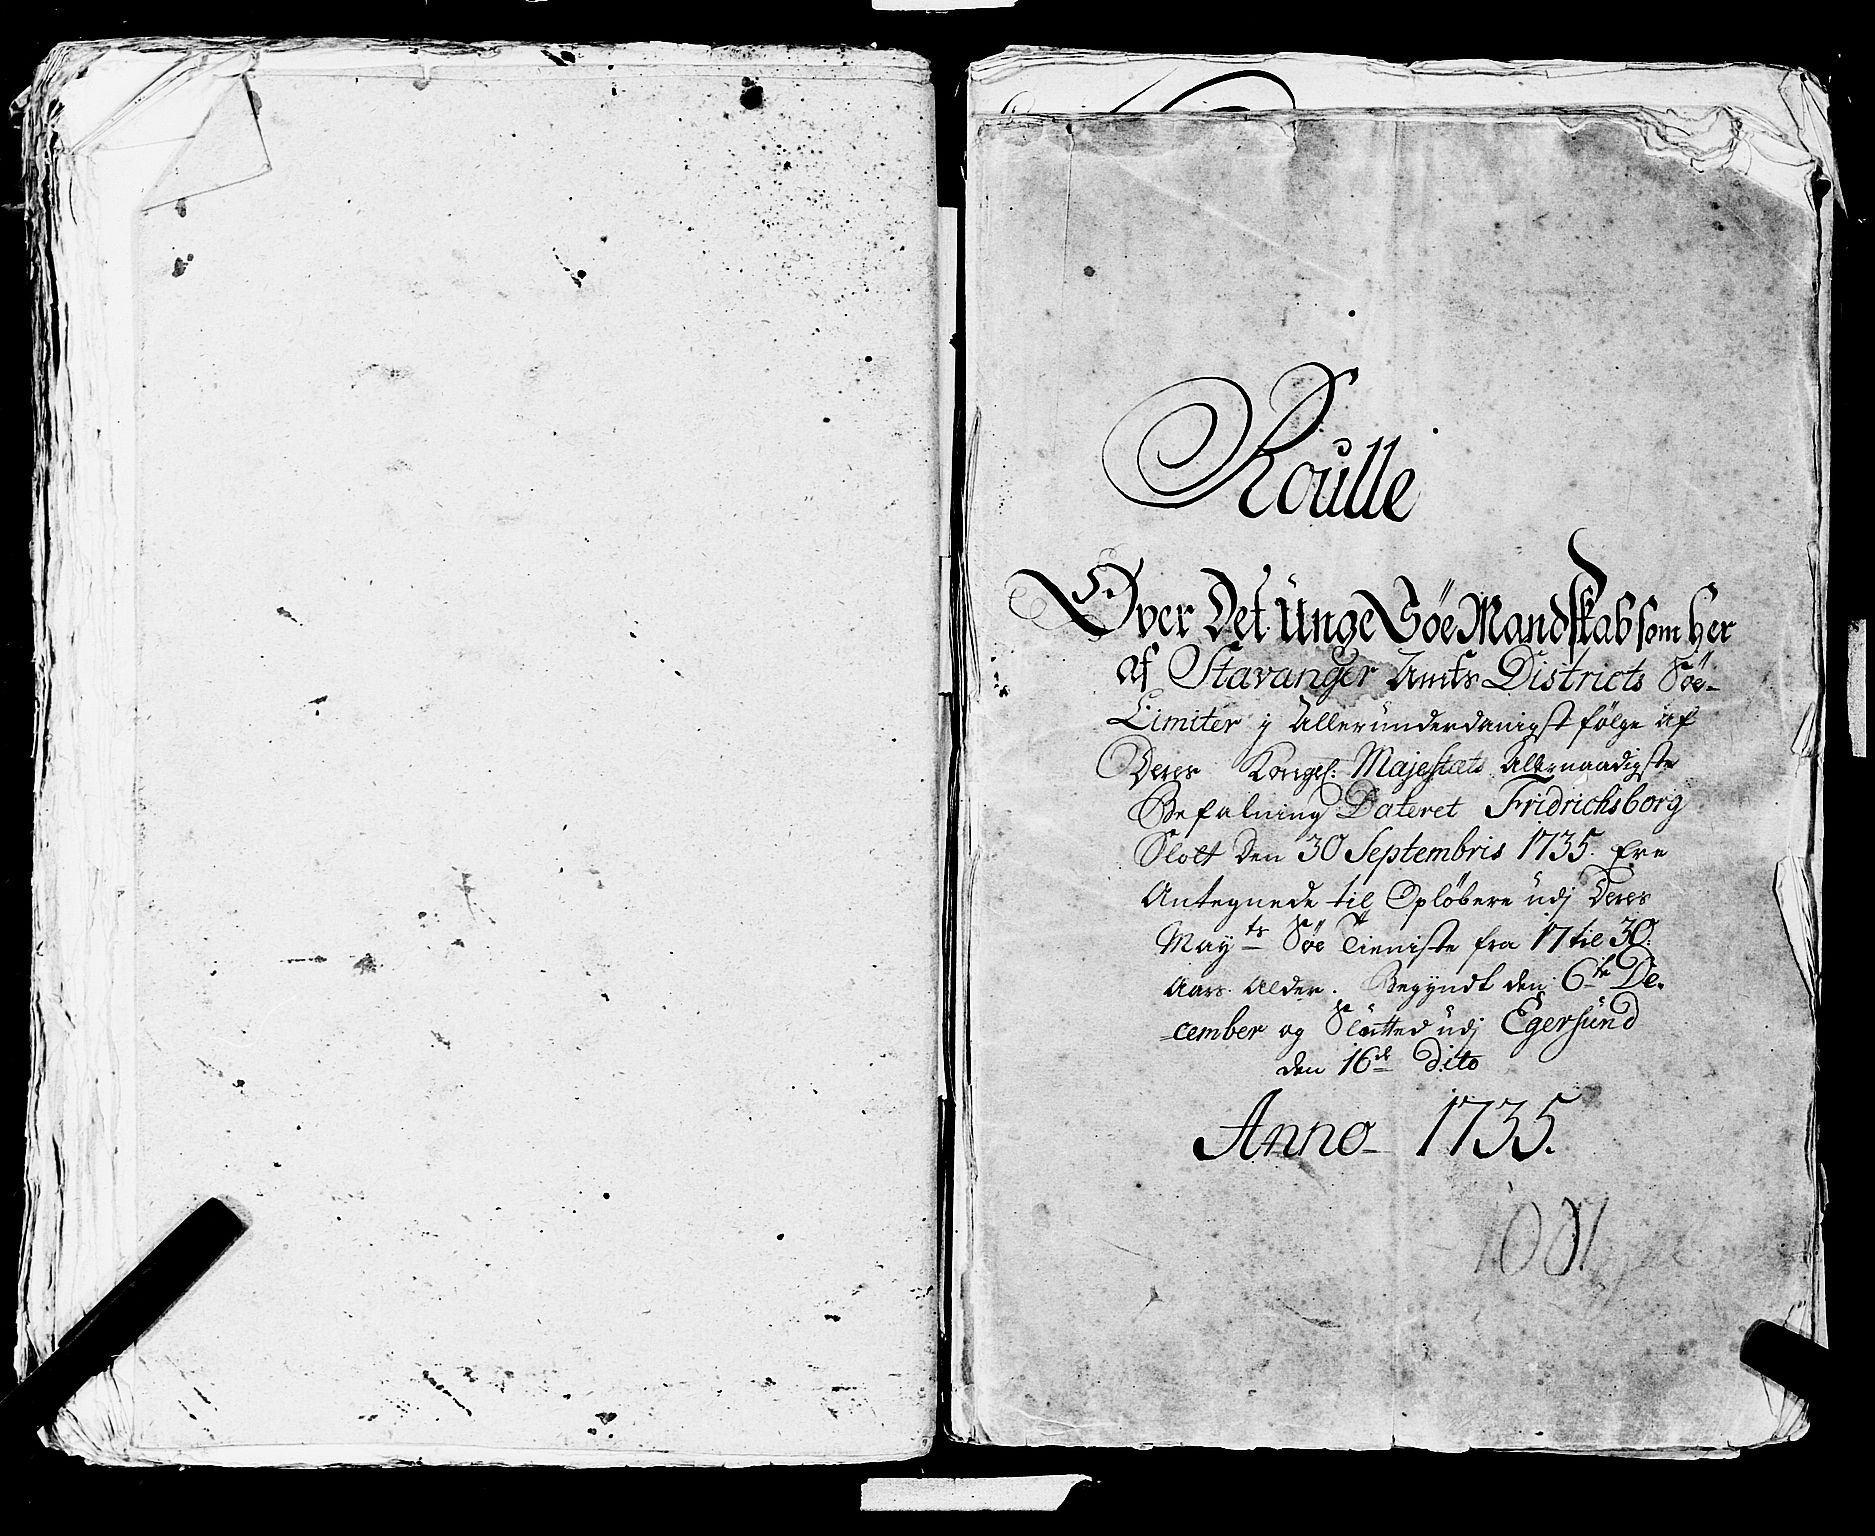 Roulle
Over Det Unge Søe Mandskab som her
af Stavanger Amts Districts Søe-
Limiter i Allerunderdanigst følge af
Deres Kongel: Majestæts Allernaadigste
Befalning Dateret Fridrichsborg
Slott den 30 Septembris 1735. Ere
Antegnede til Opløbere udj Deres
Mayts Søe Tieniste fra 17 til 30:
Aars Alder. Begyndt den 6te De-
cember og Slutted udj Egersund
den 16de Dito
Anno 1735.